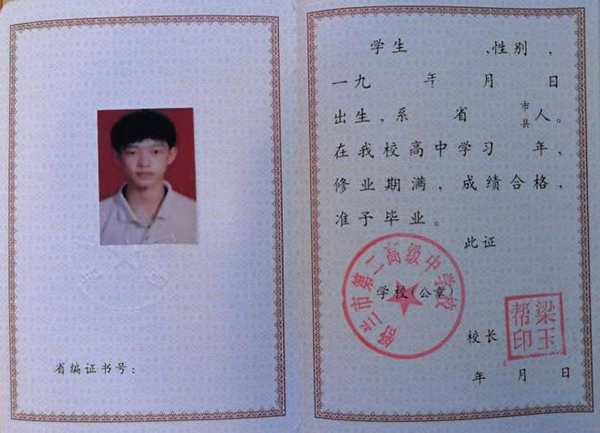 学生 、性别 ，
一九 年 月 日
出生，系 省 市县 人。
在我校高中学习 年，
修业期满，成绩合格，
准予毕业。
此证
兴市第二高级中学校
学校（公章）
梁玉帮印
校长
年 月 日
省编证书号：